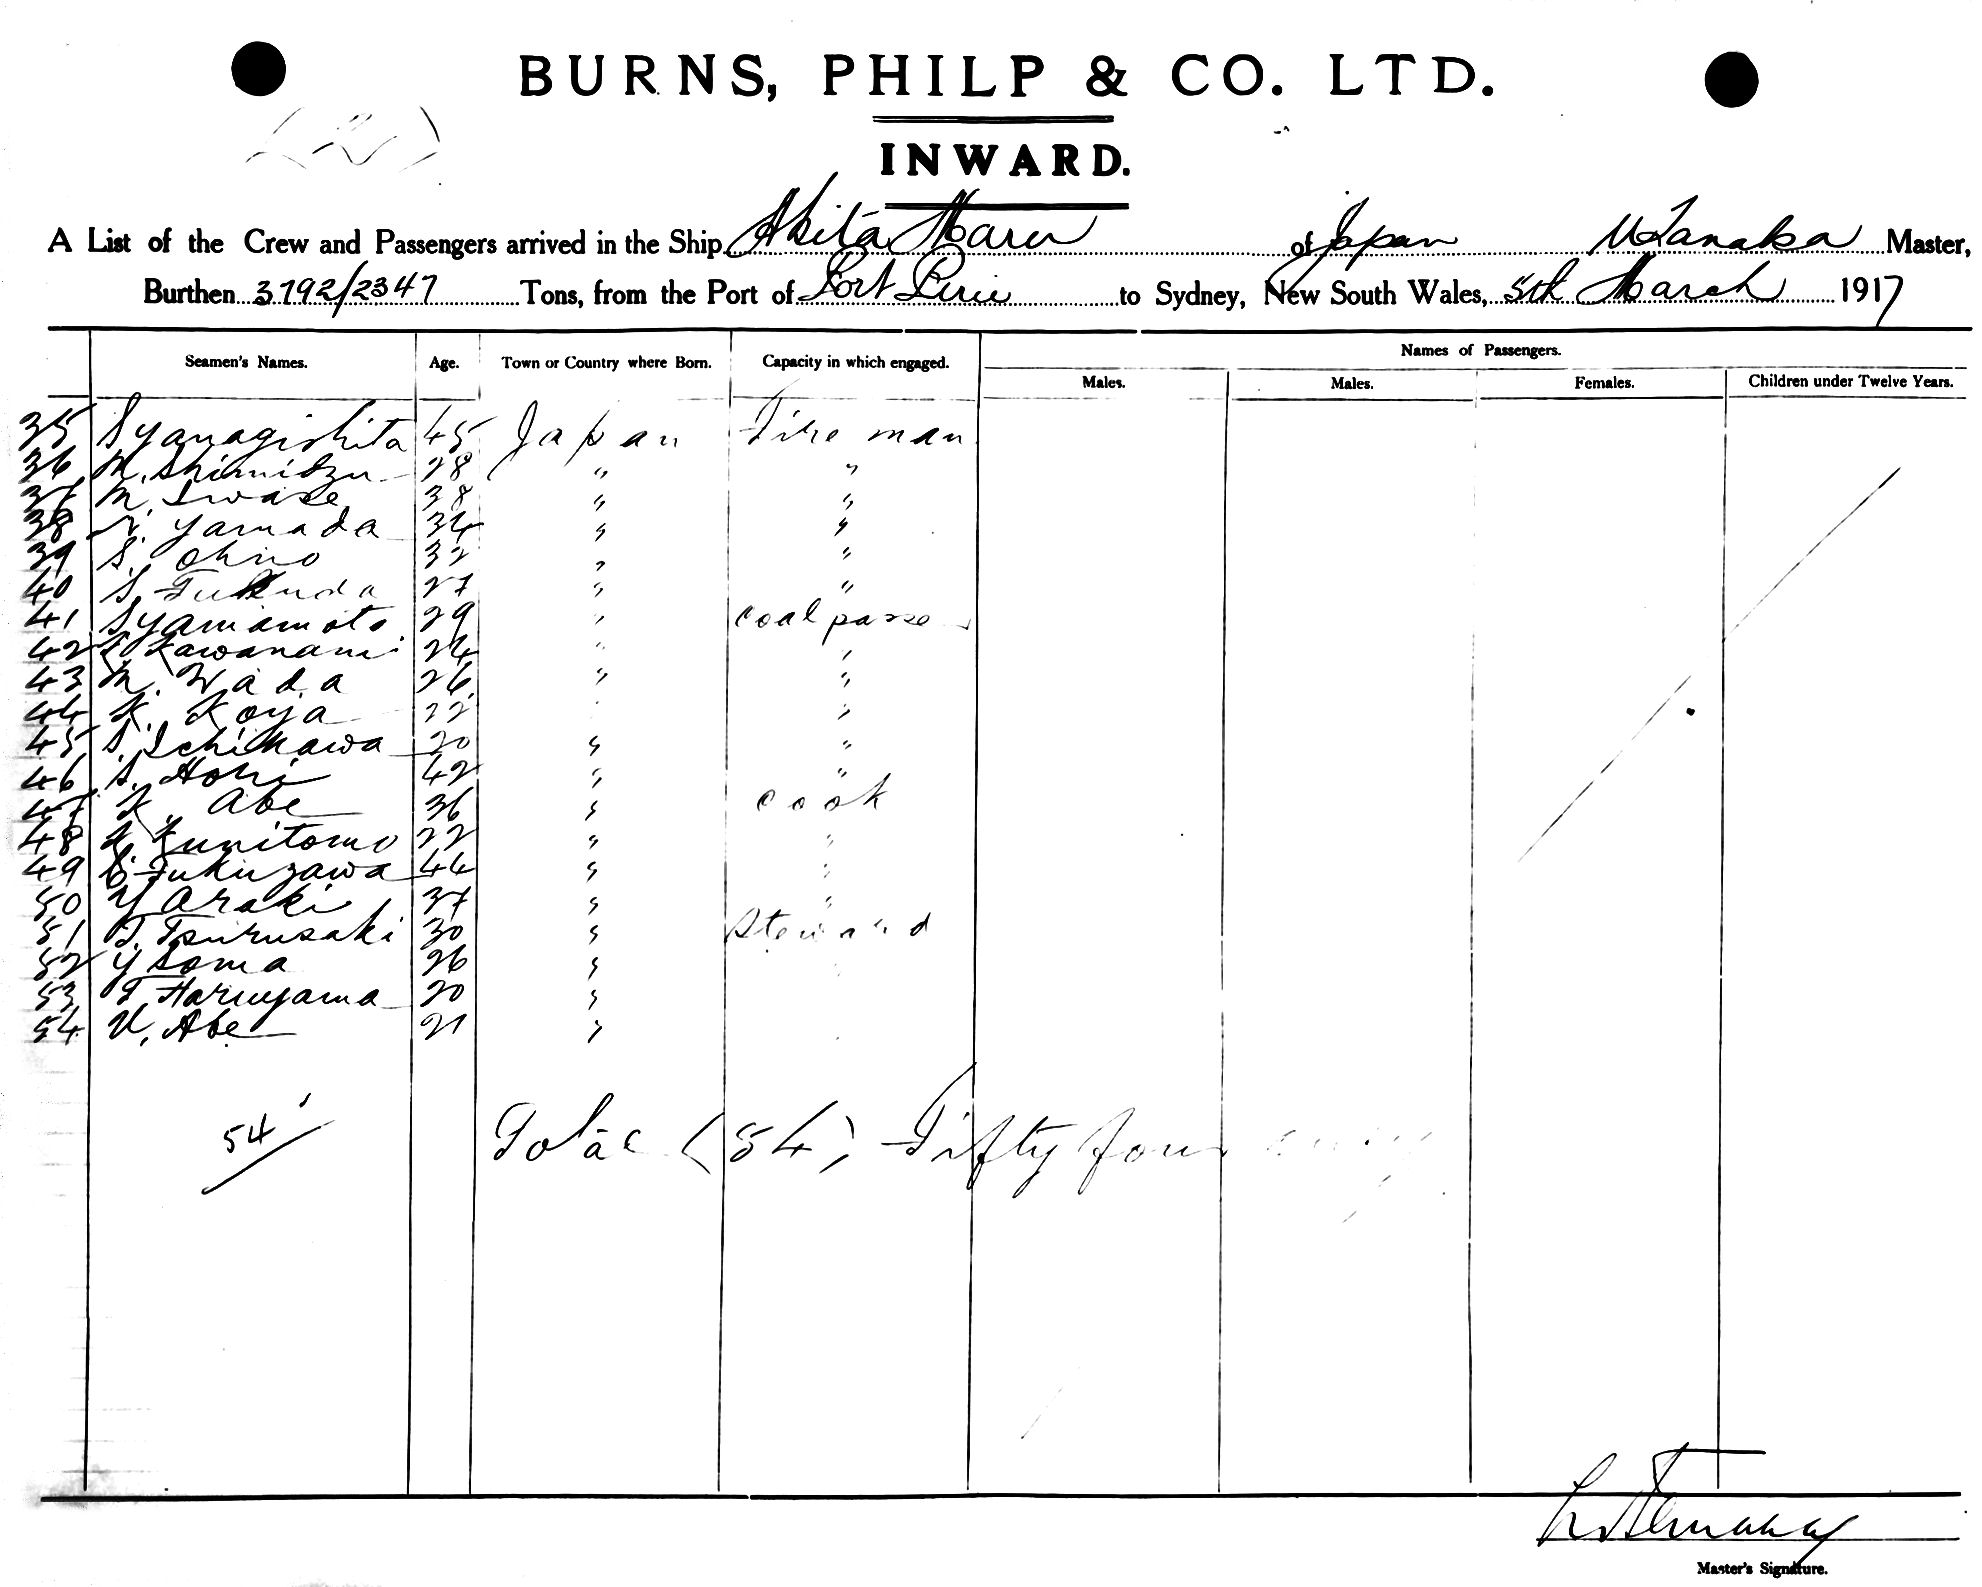 (2)
BURNS, PHILP & CO. LTD.
INWARD.
A List of the Crew and Passengers arrived in the Ship Akita Maru of Japan Tanaka Master,
Burthen 3792/2347 Tons, from the Port of Port Pirie to Sydney, New South Wales, 5th March 1917
Seamen's Names. Age. Town or Country where Born. Capacity in which engaged. Names of Passengers.
Males. Males. Females. Children under Twelve Years.
35 S yanagishita 45 Japan Fireman
36 M. Shimidzu 28 " "
37 M. Iwase 38 " "
38 yamada 34 " "
39 S. ohno 32 " "
40 S. Fukuda 27 " "
41 S yamamoto 29 " coal passe
42 K Kawanami 24 " "
43 M. Wada 26 " "
44 K. Koya 22 "
45 S. Ichikawa 20 " "
46 S. Hori 42 " "
47 K. Abe 36 " cook
48 K Kunitomo 22 " "
49 S. Fukuzawa 44 " "
50 Y Araki 37 " "
51 T. Tsurusaki 30 " Steward
52 Y Soma 26 "
53 T. Haruyama 20 "
54 U. Abe 21 "
54 Total (54) Fifty four
Master's Signature.